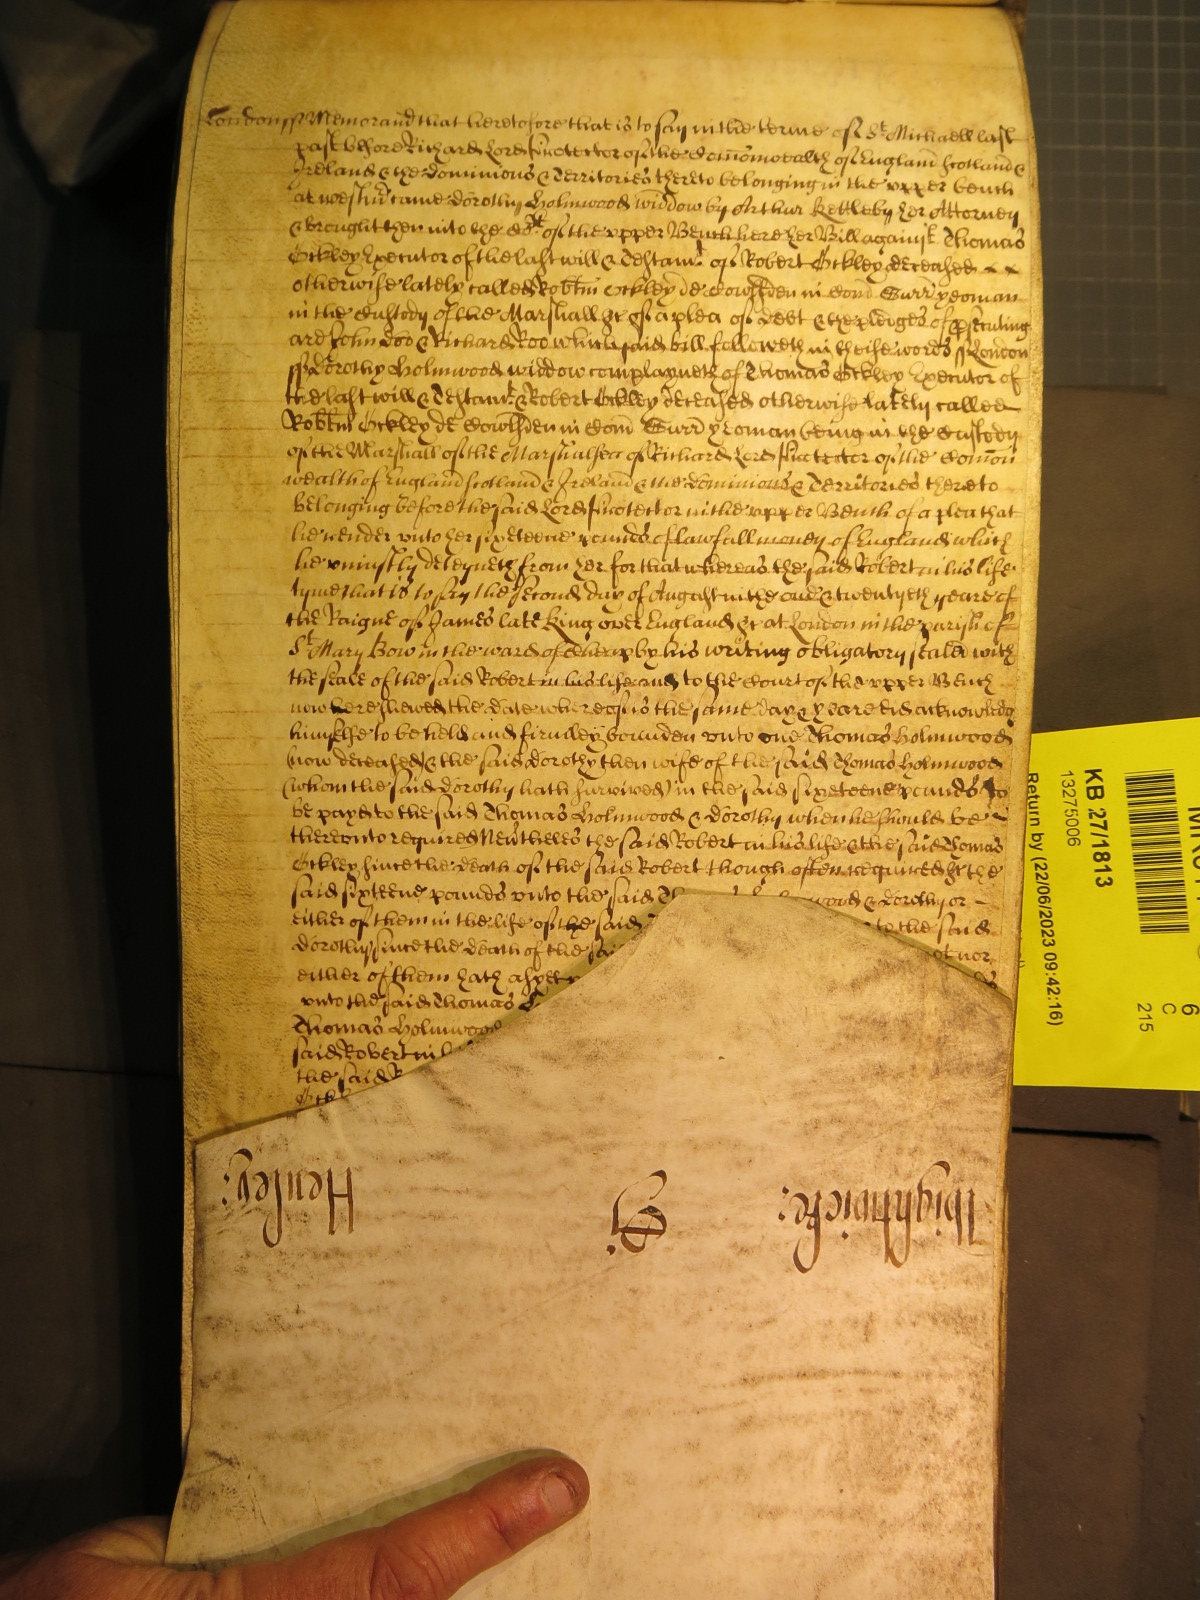 London ss Memorand that heretofore that is to say in the terme of St Michaell last
past before Richard Lord Protector of the Comonwealth of England Scotland &
Ireland & the dominions & Territories thereto belonging in the upper bench
at Westmr came dorothy Holmwood widdow by Arthur Kettleby her Attorney
& brought then into the Cort of the upper Bench here her Bill against Thomas
Ockley Executor of the last will & Testamt of Robert Ockley deceased
otherwise lately called Robtm Ockley de in Com Surr yeoman
in the Custody of the Marshall &c of a plea of debt & the pledges of psecuting
are John doo & Richard Roo which said bill followeth in theise words ss London
ss dorothy Holmwood widdow complayneth of Thomas Ockley Executor of
the last will & Testamt & Robert Ockley deceased otherwise lately called
Robtm Ockley de in Com Surr yeoman being in the Custody
of the Marshall of the Marshalsea of Richard Lord Protector of the Comon
wealth of England Scotland & Ireland & the dominions & Territories thereto
belonging before the said Lord Protector in the upper Bench of a plea that
he render unto her sixteene pounds of lawfull money of England which
he uniustly deteyneth from her for that whereas the said Robert in his life
tyme that is to say the second day of August in the one & twentyeth yeare of
the Raigne of James late King over England &c at London in the parish of
St Mary Bow in the ward of Cheap by his writing obligatory sealed with
the seale of the said Robert in his life and to the Court of the upper Bench
now here shewed the date whereof is the same day & yeare did acknowledg
himselfe to be held and firmley bounden unto one Thomas Holmwood
(now deceased) & the said dorothy then wife of the said Thomas Holmwood
(whom the said dorothy hath survived) in the said sixeteene pounds to
be payd to the said Thomas Holmwood & dorothy when he should be
thereunto required Neverthels the said Robert in his life & the said Thomas
Ockley since the death of the said Robert though often required &c the
said sixteene pounds unto the said Th wood & dorothy or
either of them in the life of the said to the said
dorothy since the death of the sai ot nor
either of them hath as yet p
unto the said Thomas
Thomas Holmwood
said Robert in l
the said R
Ockl
Henley:
Wightwicke:
KB 27/1813
13275006
Return by (22/06/2023 09:42:16)
6
C
215